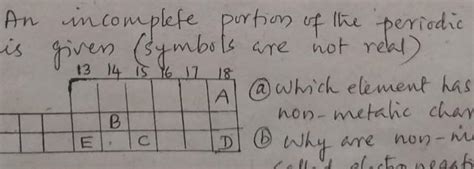 An incomplete portion of the periodic
is given (symbols are not real)
13 14 15 16 17 18
A
B
E C D
(a) which element has
non-metalic char
(b) Why are non-m
called electronegati